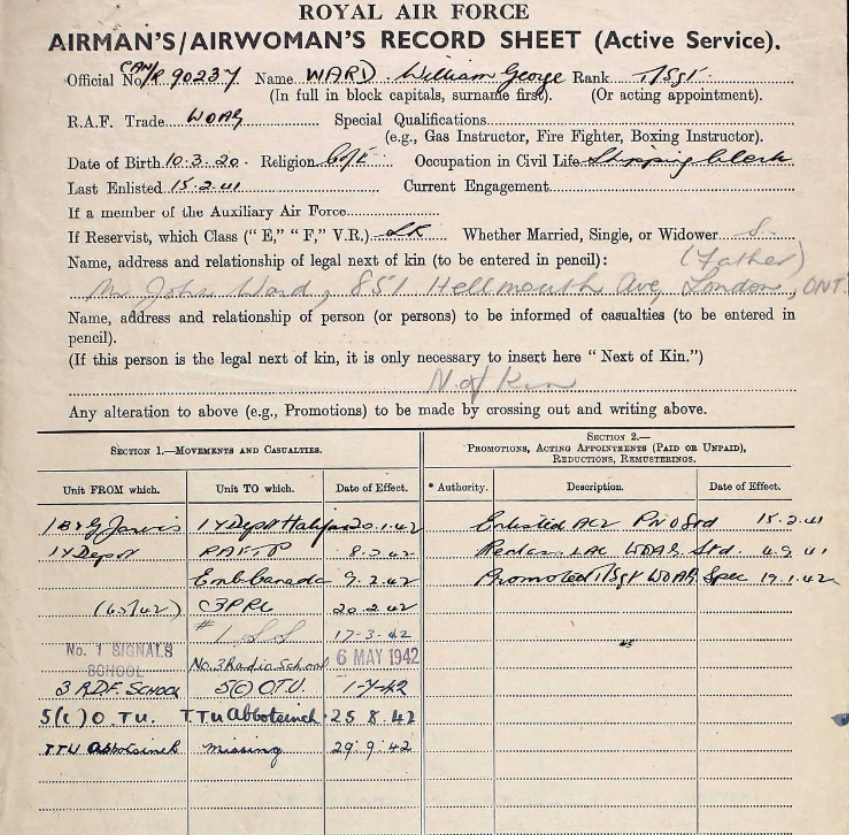 ROYAL AIR FORCE
AIRMAN'S/AIRWOMAN'S RECORD SHEET (Active Service).
Official No. CAN/R 90237 Name WARD William George Rank T/Sgt.
(In full in block capitals, surname first). (Or acting appointment).
R.A.F. Trade WOAG Special Qualifications
(e.g., Gas Instructor, Fire Fighter, Boxing Instructor).
Date of Birth 10.3.20. Religion C of E Occupation in Civil Life Shipping Clerk
Last Enlisted 15.2.41 Current Engagement
If a member of the Auxiliary Air Force
If Reservist, which Class ("E," "F," V.R.) Whether Married, Single, or Widower S.
Name, address and relationship of legal next of kin (to be entered in pencil): (Father)
Mr John Ward, 851 Hellmouth Ave, London, ONT.
Name, address and relationship of person (or persons) to be informed of casualties (to be entered in
pencil).
(If this person is the legal next of kin, it is only necessary to insert here "Next of Kin.")
N. of Kin
Any alteration to above (e.g., Promotions) to be made by crossing out and writing above.
SECTION 1.—MOVEMENTS AND CASUALTIES.
SECTION 2.—
PROMOTIONS, ACTING APPOINTMENTS (PAID OR UNPAID),
REDUCTIONS, REMUSTERINGS.
Unit FROM which. Unit TO which. Date of Effect. * Authority. Description. Date of Effect.
1 B&G Jarvis 1 Y Depot Halifax 20.1.42 Enlisted AC2 Std 15.2.41
1 Y Depot RAFTP 8.2.42 LAC WOAG. Std. 4.9.41
Emb. Canada 9.2.42 Promoted T/Sgt WOAG Spec 19.1.42
(65/42) C3PRC 20.2.42
#1 S S 17-3-42
No. 1 SIGNALS
SCHOOL
No. 3 Radio School 6 MAY 1942
3 R.D.F. SCHOOL 5(C) O.T.U. 1-7-42
5(c) O.TU. T.Tu Abbotsinch 25.8.42
TTU Abbotsinch Missing 29.9.42